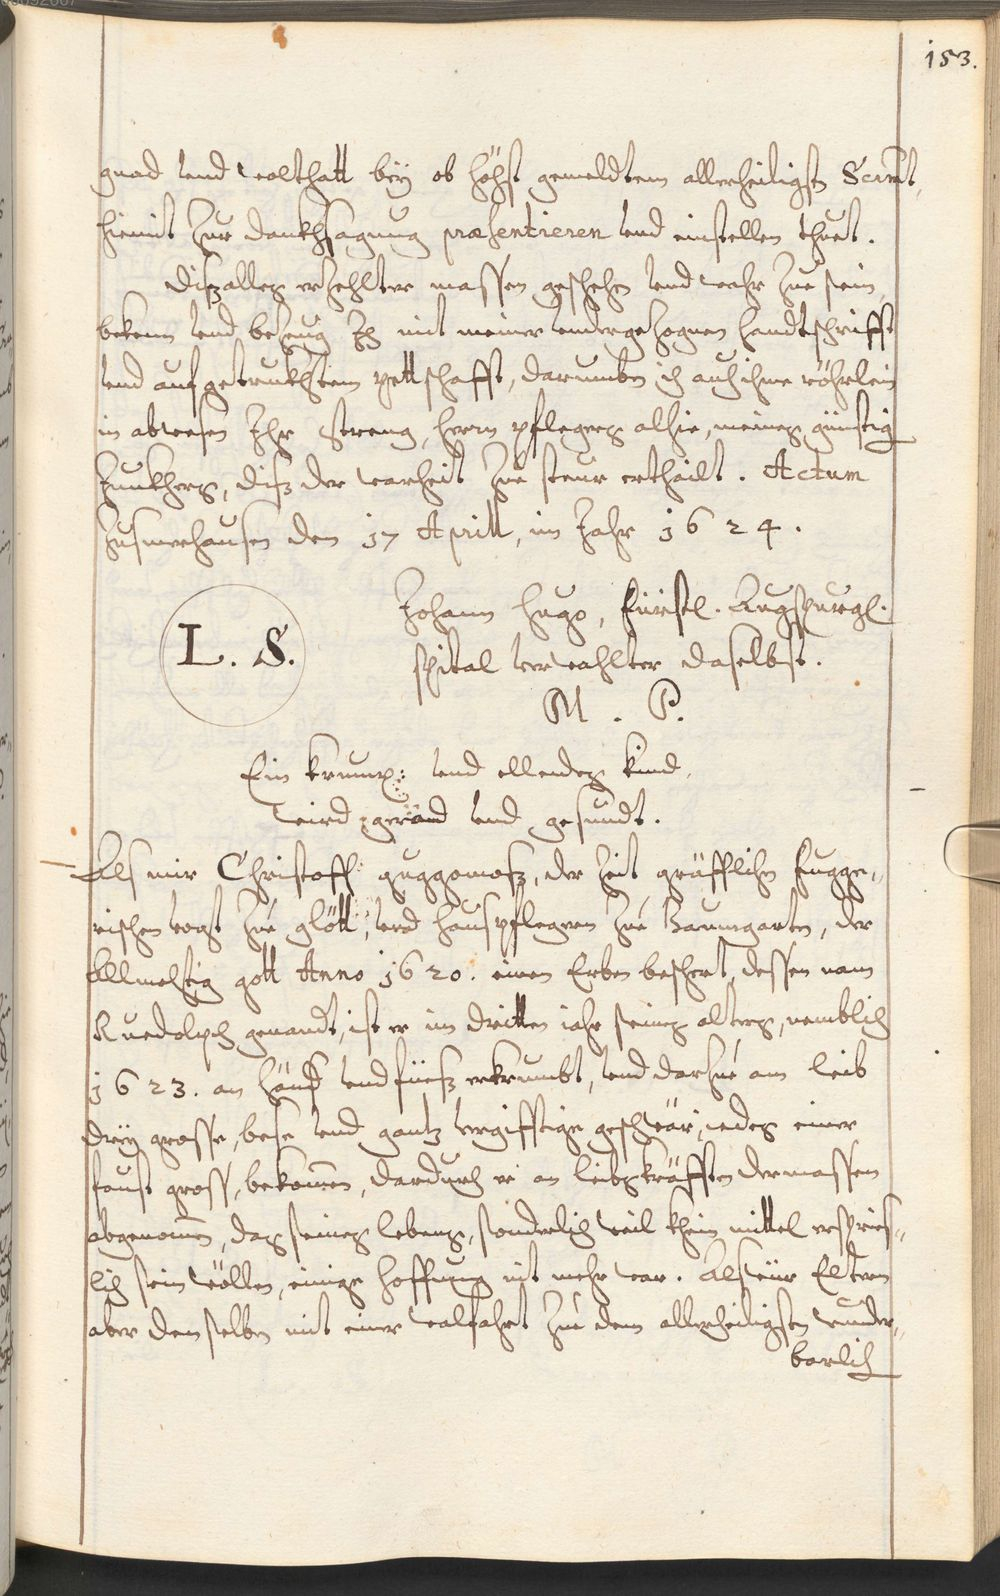 153.
gnad vnd wolthatt beÿ ob höhst gemeldtem allerheiligsten Scrmt,
hiemit zur danckhsagung præsentieren vnd einstellen thuet.
Diß alles erzehlter massen geschehen vnd wahr zue sein,
bekenn vnd bezeug Ich mit meiner vndergezognen handtschrifft
vnd aufgetruckhtem pettschafft, darumben ich auch ihme röhrlein
in abwesen Ihr Streng, herrn pflegers alhie, meines günstig
Junckhers, diß der warheit zue steur erthailt. Actum
Zusmerhausen den 17 Aprill, im Jahr 1624.
L. S.
Johann Hugo, Fürstl. Augspurgl.
spital verwahlter daselbst.
M. P.
Ein krump: vnd ellendes kind,
wird gerad vnd gesundt.
Als mir Christoff guggomoß, der zeit gräfflichen fugge„
rischen vogt zue glött, vnd hauspflegern zue Baumgarten, der
Allmechtig gott Anno 1620. einen Erben beschert, dessen nam
Ruedolph genandt, ist er im dritten iahr seines alters, nemblich
1623. an händ vnd füeß erkrumbt, vnd darzue am leib
dreÿ grosse, bese vnd gantz vergifftige geschwär, iedes einer
faust gross, bekom̄en, dardurch er an leibskräfften dermassen
abgenom̄en, das seines lebens, sonderlich weil khein mittel erspries„
lich sein wöllen, einige hoffnung nit mehr war. Als wür Eltern
aber denselben mit einer walfahrt zue dem allerheiligsten wunder„
barlich